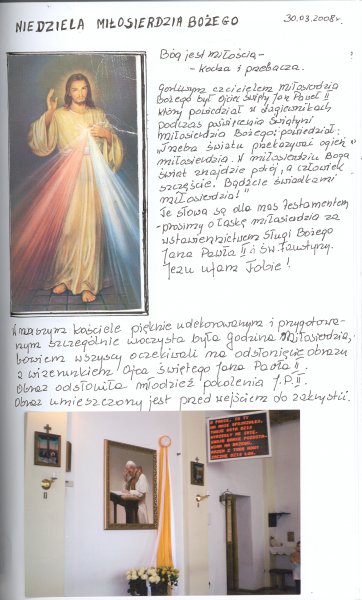 NIEDZIELA MIŁOSIERDZIA BOŻEGO 30.03.2008r.
Bóg jest miłością -
- kocha i przebacza.
Gorliwym czcicielem miłosierdzia
Bożego był Ojciec Święty Jan Paweł II
który powiedział w Łagiewnikach
podczas poświęcenia Świątyni
Miłosierdzia Bożego: powiedział:
"Trzeba światu przekazywać ogień
miłosierdzia. W miłosierdziu Boga
świat znajdzie pokój, a człowiek
szczęście. Bądźcie świadkami
miłosierdzia!"
Te słowa są dla nas testamentem
- prosimy o łaskę miłosierdzia za
wstawiennictwem Sługi Bożego
Jana Pawła II i św. Faustyny.
Jezu ufam Tobie!
W naszym kościele pięknie udekorowanym i przygotowa-
nym szczególnie uroczysta była Godzina Miłosierdzia,
bowiem wszyscy oczekiwali na odsłonięcie obrazu
z wizerunkiem Ojca świętego Jana Pawła II.
Obraz odsłoniła młodzież pokolenia J.P.II.
Obraz umieszczony jest przed wejściem do zakrystii.